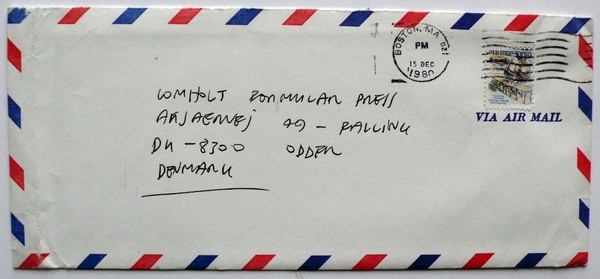 BOSTON, MA 021
PM
15 DEC
1980
VIA AIR MAIL
LOMHOLT FORMULAR PRESS
AKJAERVEJ 49 - FALLING
DK - 8300 ODDER
DENMARK